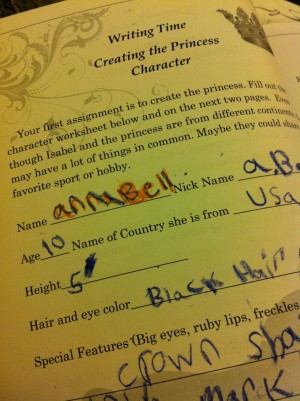 Writing Time
Creating the Princess
Character
Your first assignment is to create the princess. Fill out the
character worksheet below and on the next two pages. Even
though Isabel and the princess are from different continents,
may have a lot of things in common. Maybe they could share
favorite sport or hobby.
Name annaBell Nick Name a.B.
Age 10 Name of Country she is from USa
Height 5'
Hair and eye color Black Hair
Special Features (Big eyes, ruby lips, freckles
crown sha
Mark